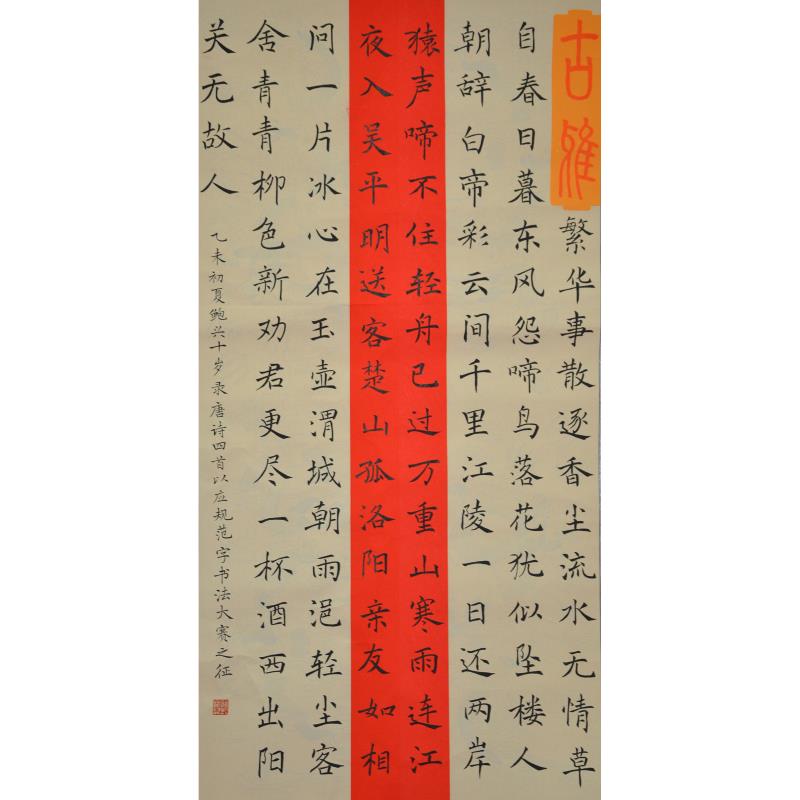 古雅
繁华事散逐香尘流水无情草
自春日暮东风怨啼鸟落花犹似坠楼人
朝辞白帝彩云间千里江陵一日还两岸
猿声啼不住轻舟已过万重山寒雨连江
夜入吴平明送客楚山孤洛阳亲友如相
问一片冰心在玉壶渭城朝雨浥轻尘客
舍青青柳色新劝君更尽一杯酒西出阳
关无故人
乙未初夏鲍兴十岁录唐诗四首以应规范字书法大赛之征